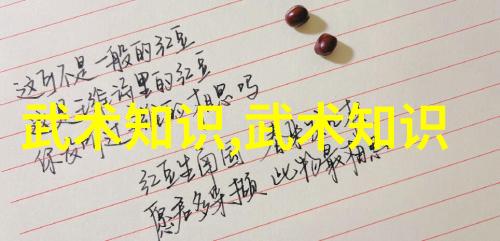 这可不是一般的红豆
这是三维海里的红豆
你仅可过 的相思吗
武术知识,武术知识
红豆生南国 春来 
愿君多采撷 此物最相思